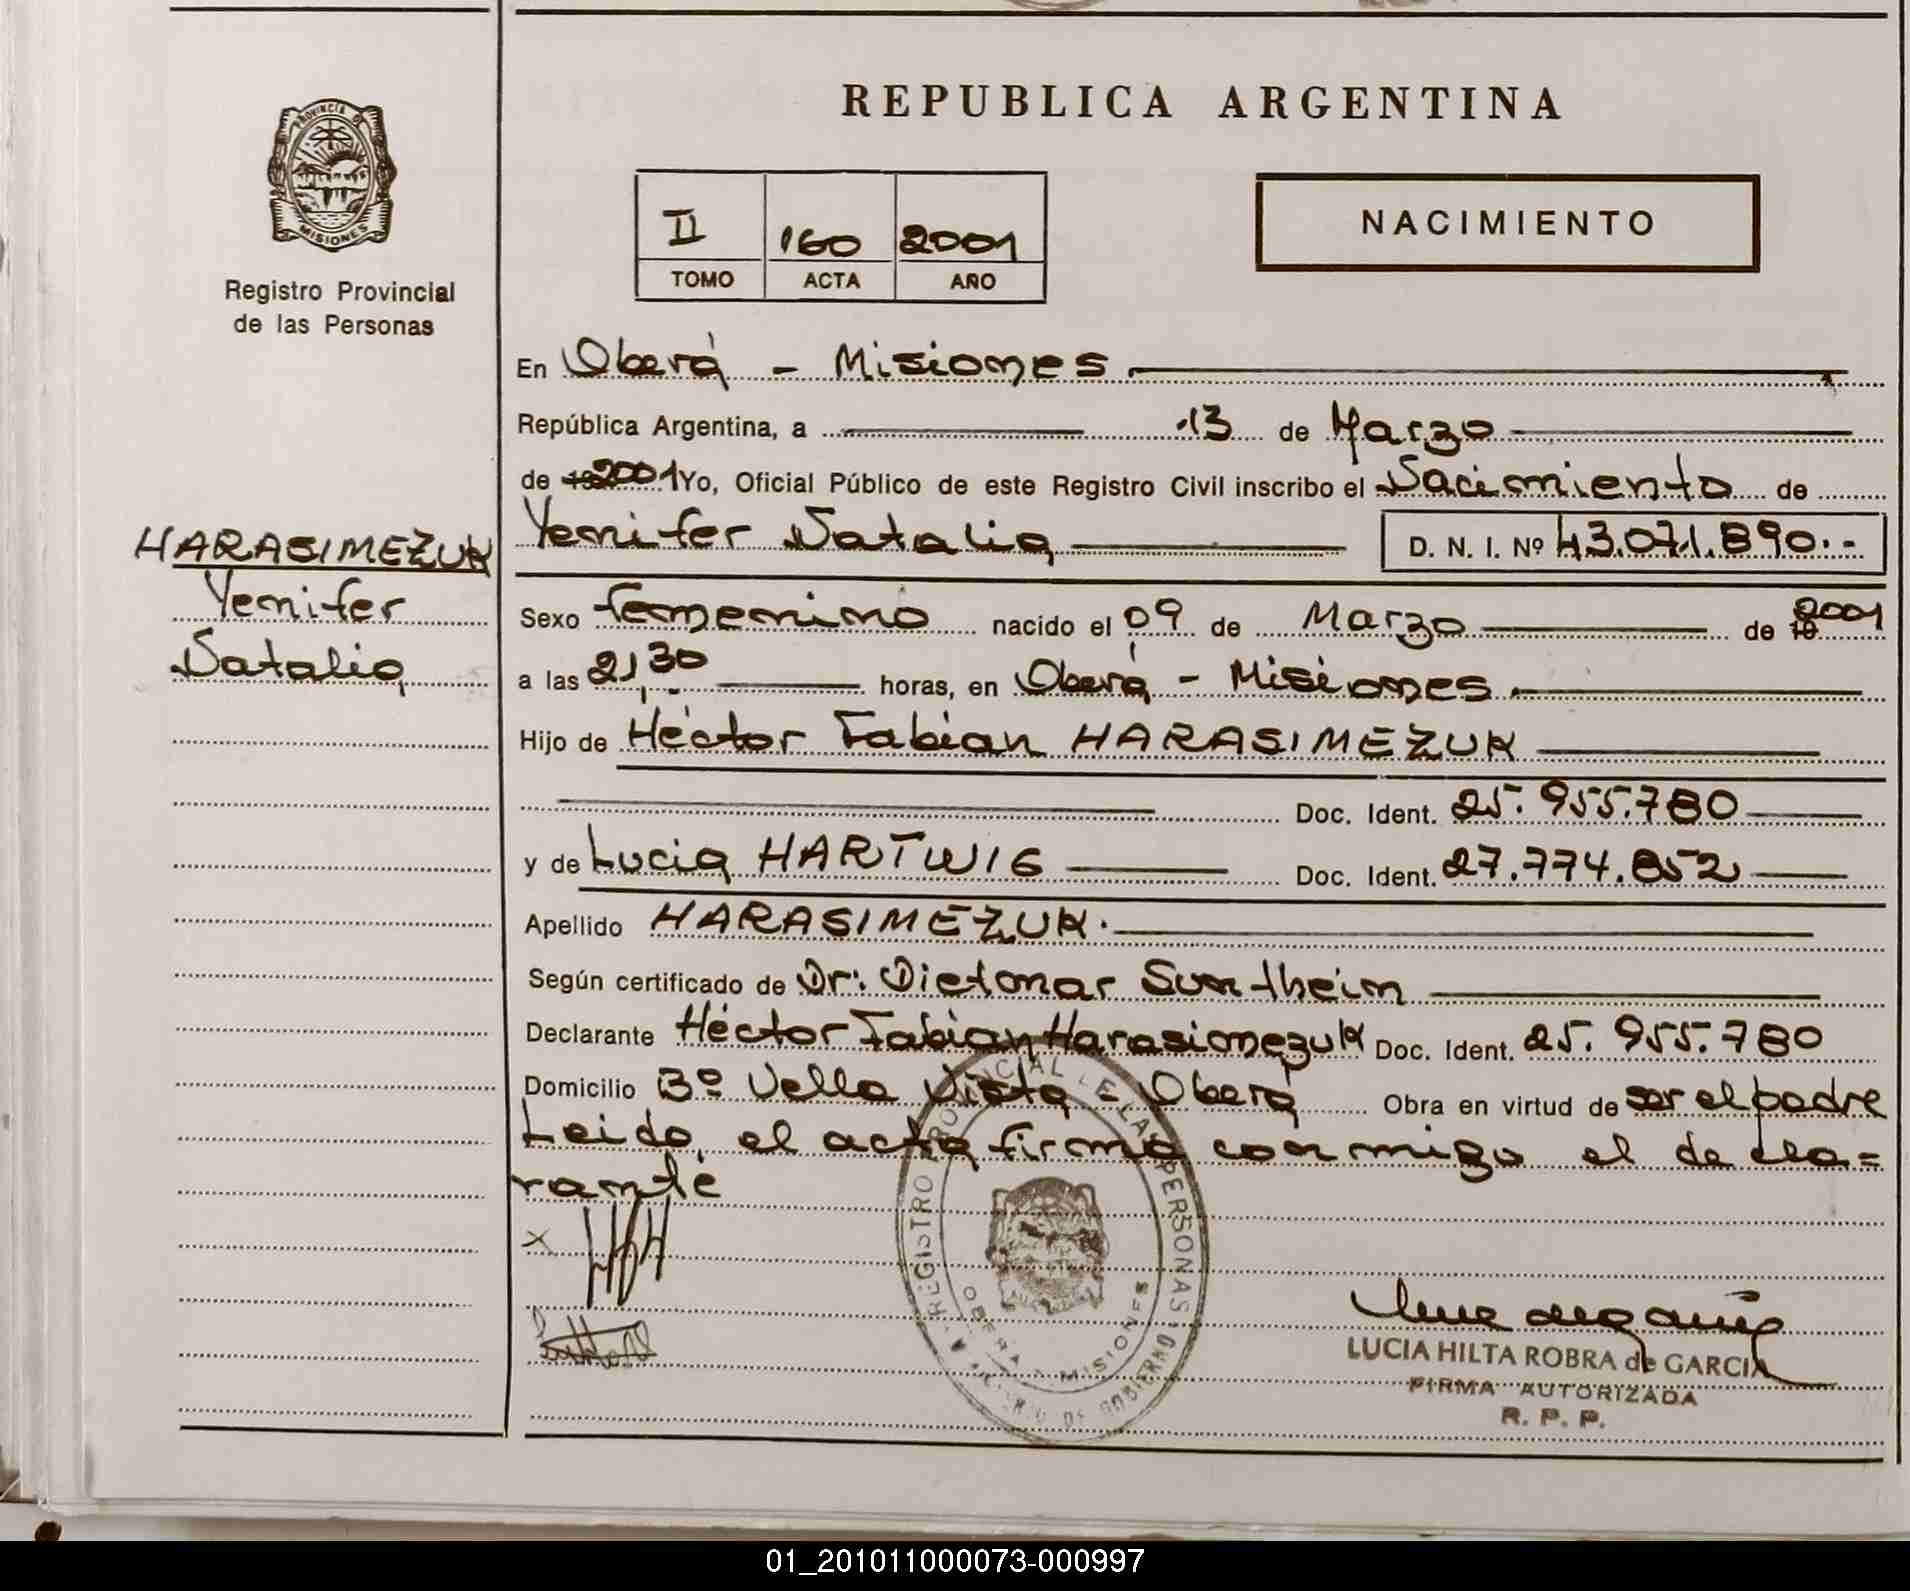 REPUBLICA ARGENTINA
PROVINCIA DE
MISIONES
Registro Provincial
de las Personas
II 160 2001
TOMO ACTA AÑO
NACIMIENTO
En Oberá - Misiones
República Argentina, a 13 de Marzo
de 19 2001 Yo, Oficial Público de este Registro Civil inscribo el Nacimiento de
Yenifer Natalia D. N. I. Nº 43.071.890.-
HARASIMEZUK
Yenifer
Natalia
Sexo femenino nacido el 09 de Marzo de 19 2001
a las 21,30 horas, en Oberá - Misiones
Hijo de Héctor Fabian HARASIMEZUK
Doc. Ident. 25.955.780
y de Lucia HARTWIG Doc. Ident. 27.774.852
Apellido HARASIMEZUK.
Según certificado de Dr: Dietmar Suntheim
Declarante Héctor Fabian Harasimezuk Doc. Ident. 25.955.780
Domicilio Bº Vella Vista - Oberá Obra en virtud de ser el padre
Leido, el acta firma conmigo el decla=
rante
x
REGISTRO PROVINCIAL DE LAS PERSONAS
OBERA - MISIONES
DE GOBIERNO
LUCIA HILTA ROBRA de GARCIA
FIRMA AUTORIZADA
R. P. P.
01_201011000073-000997